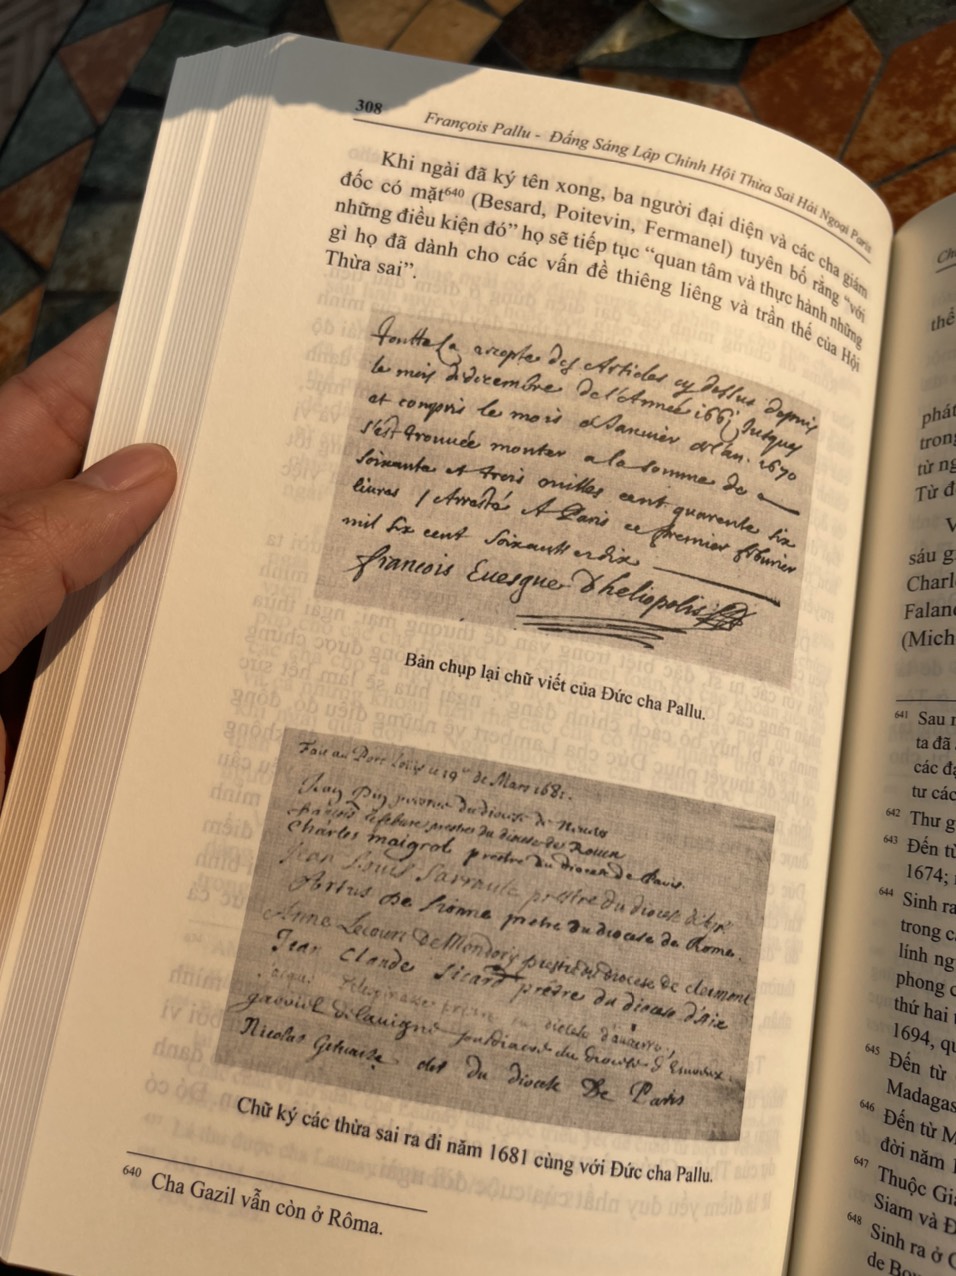 308
François Pallu - Đấng Sáng Lập Chính Hội Thừa Sai Hải Ngoại Paris
Khi ngài đã ký tên xong, ba người đại diện và các cha giám
đốc có mặt⁶⁴⁰ (Besard, Poitevin, Fermanel) tuyên bố rằng “với
những điều kiện đó” họ sẽ tiếp tục “quan tâm và thực hành những
gì họ đã dành cho các vấn đề thiêng liêng và trần thế của Hội
Thừa sai”.
des Articles cy dessus depuis
le mois de decembre de l'Année 1667 Jusques
et compris le mois de Januier de l'an. 1670
s'est trouuée monter a la somme de
soixante et trois milles cent quarente six
liures / Arresté A Paris ce premier feburier
mil six cent soixante et dix
francois Euesque d'heliopolis
Bản chụp lại chữ viết của Đức cha Pallu.
Fait au Port Louis le 19 de Mars 1681.
Jean du diocese de
prestre du diocese de Rouen
Charles maigrot prestre du diocese de Paris.
Jean Louis prestre du diocese
Artus De Lionne prêtre du diocese de Rome.
Anne du diocese de clermont
Jean Claude Sicard prêtre du diocese d'Aix
gabriel du diocese
Nicolas Gervaise du diocese De Paris
Chữ ký các thừa sai ra đi năm 1681 cùng với Đức cha Pallu.
⁶⁴⁰ Cha Gazil vẫn còn ở Rôma.
thể
phát
trong
từ
Từ
sáu
(Mich
⁶⁴¹ Sau
ta đã
các
tư các
⁶⁴² Thư
⁶⁴³ Đến từ
1674;
⁶⁴⁴ Sinh ra
trong
lính
phong
thứ hai
1694,
⁶⁴⁵ Đến từ
Madagas
⁶⁴⁶ Đến từ
đời năm
⁶⁴⁷ Thuộc
Siam và
⁶⁴⁸ Sinh ra ở
de